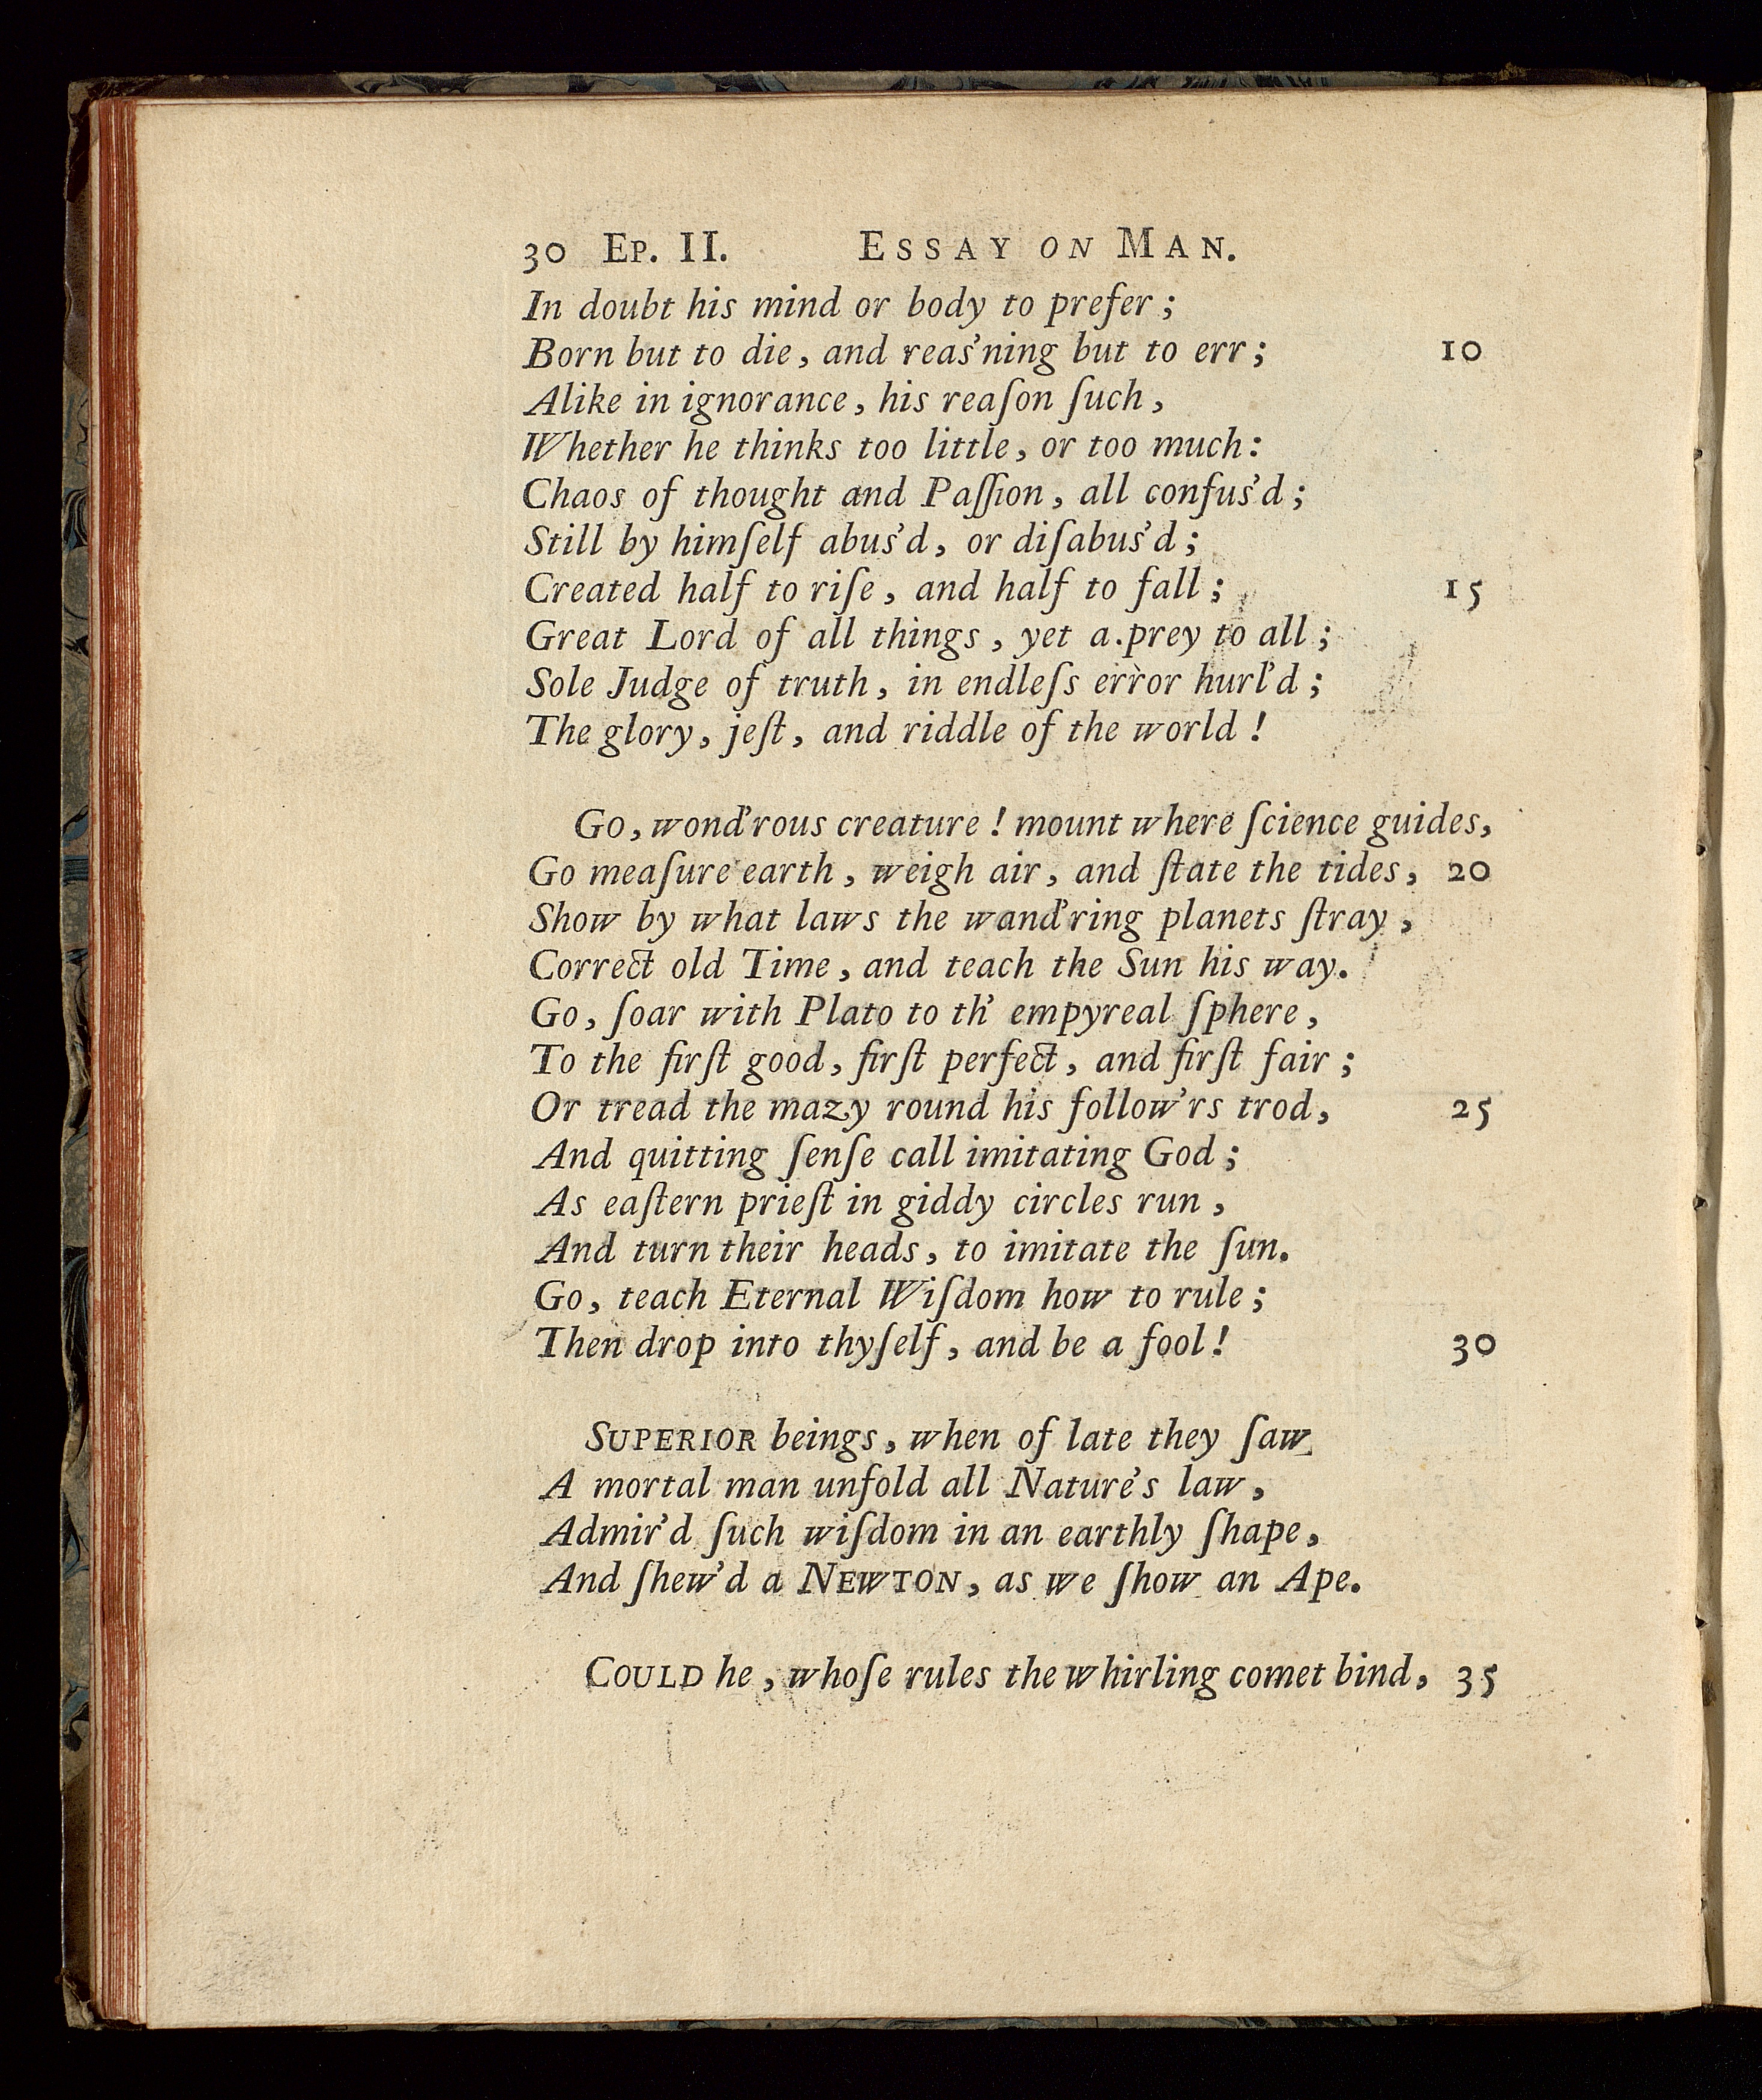 30 Ep. II. ESSAY ON MAN.
In doubt his mind or body to prefer;
Born but to die, and reas'ning but to err; 10
Alike in ignorance, his reaſon ſuch,
Whether he thinks too little, or too much:
Chaos of thought and Paſſion, all confus'd;
Still by himſelf abus'd, or diſabus'd;
Created half to riſe, and half to fall; 15
Great Lord of all things, yet a prey to all;
Sole Judge of truth, in endleſs error hurl'd;
The glory, jeſt, and riddle of the world!
Go, wond'rous creature! mount where ſcience guides,
Go meaſure earth, weigh air, and ſtate the tides, 20
Show by what laws the wand'ring planets ſtray,
Correct old Time, and teach the Sun his way.
Go, ſoar with Plato to th' empyreal ſphere,
To the firſt good, firſt perfect, and firſt fair;
Or tread the mazy round his follow'rs trod, 25
And quitting ſenſe call imitating God;
As eaſtern prieſt in giddy circles run,
And turn their heads, to imitate the ſun.
Go, teach Eternal Wiſdom how to rule;
Then drop into thyſelf, and be a fool! 30
SUPERIOR beings, when of late they ſaw
A mortal man unfold all Nature's law,
Admir'd ſuch wiſdom in an earthly ſhape,
And ſhew'd a NEWTON, as we ſhow an Ape.
COULD he, whoſe rules the whirling comet bind, 35